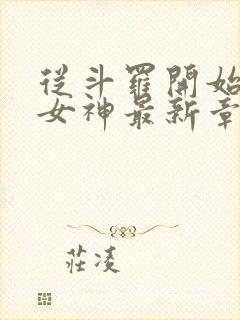 從斗羅開始
女神最新章
莊凌